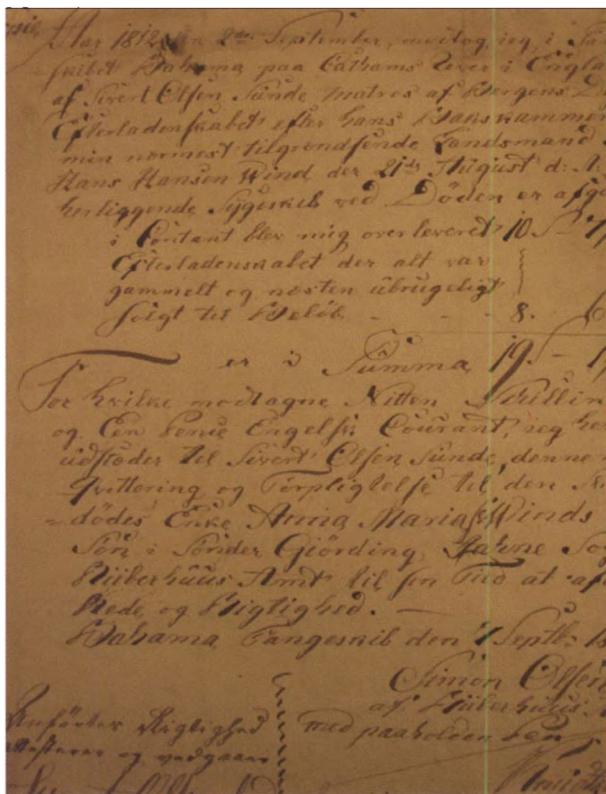 Aar 1812 den 2den September, modtog jeg, i
skibet Bahama paa Cathams Rever i Engla
af Sivert Olsen Sunde Matros af Bergens D
Efterladenskabet efter hans
min nærmest tilgrændsende Landsmand
Hans Hansen Wind der 21de Augüst d: A
herliggende Sygeskib ved Döden er afg
i Contant blev mig overleveret 10 S
Efterladenskabet der alt var
gammelt og næsten übrugeligt
Solgt til Belöb - - - 8. 6
er i Summa 19 S - 1
For hvilke modtagne Nitten Schillin
og Een Penie Engelsk Courant, jeg her
üdstæder til Sivert Olsen Sunde, denne
Qvittering og Forpligtelse til den
dödes Enke Anna Maria Winds
Sön i Sönder Giörding,
Riiberhuus Amt til sin Tiid at af
Rede og Rigtighed.
Bahama Fangeskib den 7 Septbr 18
Simon Olsen
af Riiberhuus
med paaholden Pen
Anförtes Rigtighed
og vedgaaer